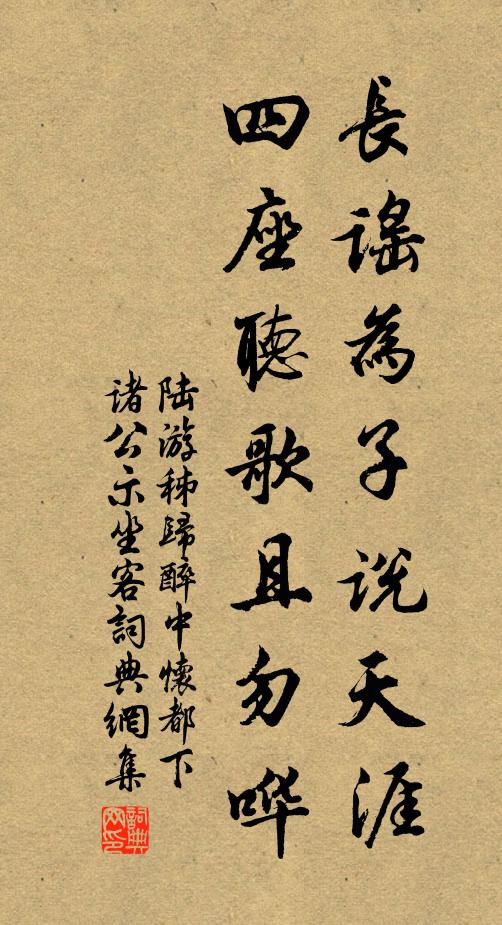 長謠為子説天涯
四座聽歌且勿嘩
陆游秭歸醉中懷都下
诸公示坐客詞典網集
詞典网印